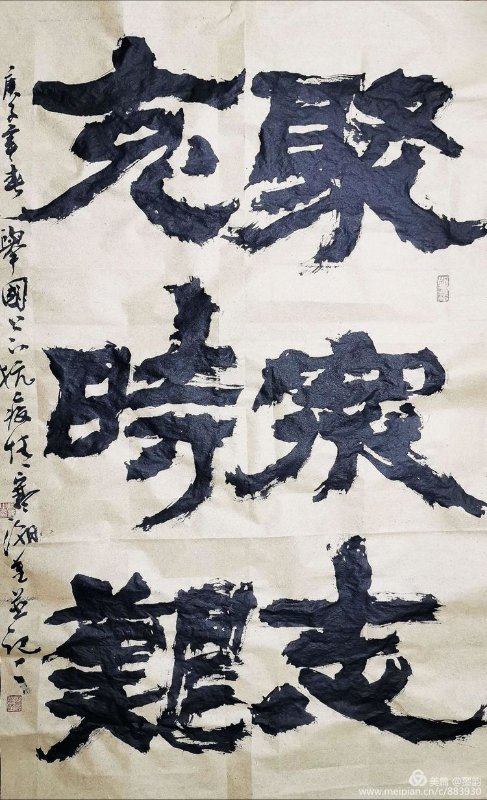 聚眾志
克時艱
庚子年春舉國上下抗疫情寒潮書並記之
美篇
www.meipian.cn/c/883930